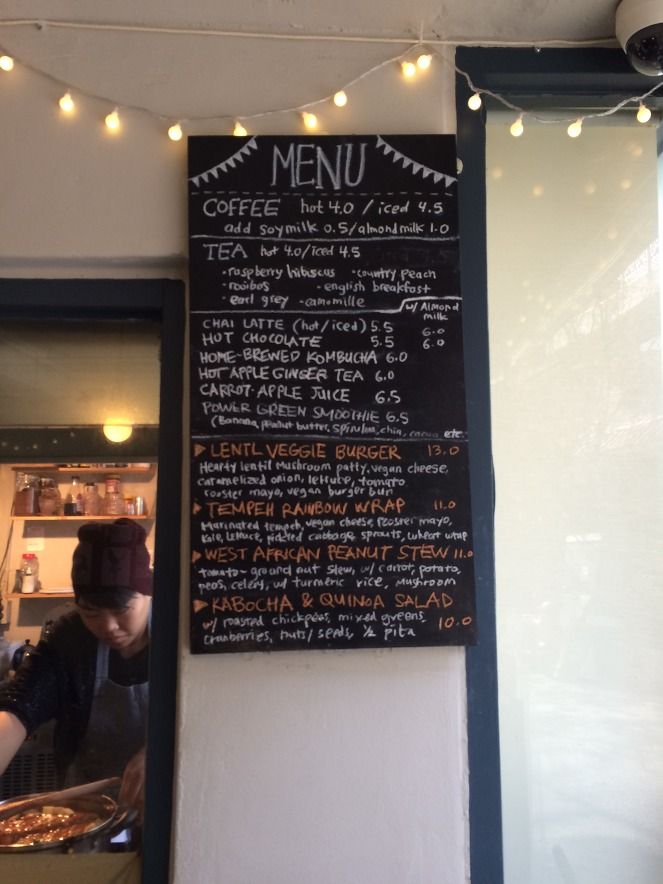 MENU
COFFEE hot 4.0 / iced 4.5
add soymilk 0.5/almondmilk 1.0
TEA hot 4.0/iced 4.5
•raspberry hibiscus •country peach
•rooibos •english breakfast
•earl grey •camomille
w/ Almond milk
CHAI LATTE (hot/iced) 5.5 6.0
HOT CHOCOLATE 5.5 6.0
HOME-BREWED KOMBUCHA 6.0
HOT APPLE GINGER TEA 6.0
CARROT-APPLE JUICE 6.5
POWER GREEN SMOOTHIE 6.5
(Banana, peanut butter, spirulina, chia, cacao etc.
LENTL VEGGIE BURGER 13.0
Hearty lentil mushroom patty, vegan cheese,
caramelized onion, lettuce, tomato
rooster mayo, vegan burger bun
TEMPEH RAINBOW WRAP 11.0
Marinated tempeh, vegan cheese, rooster mayo,
kale, lettuce, pickled cabbage, sprouts, wheat wrap
WEST AFRICAN PEANUT STEW 11.0
tomato-ground nut stew, w/ carrot, potato,
peas, celery, w/ turmeric rice, mushroom
KABOCHA & QUINOA SALAD
w/ roasted chickpeas, mixed greens, 10.0
cranberries, nuts/seeds, ½ pita